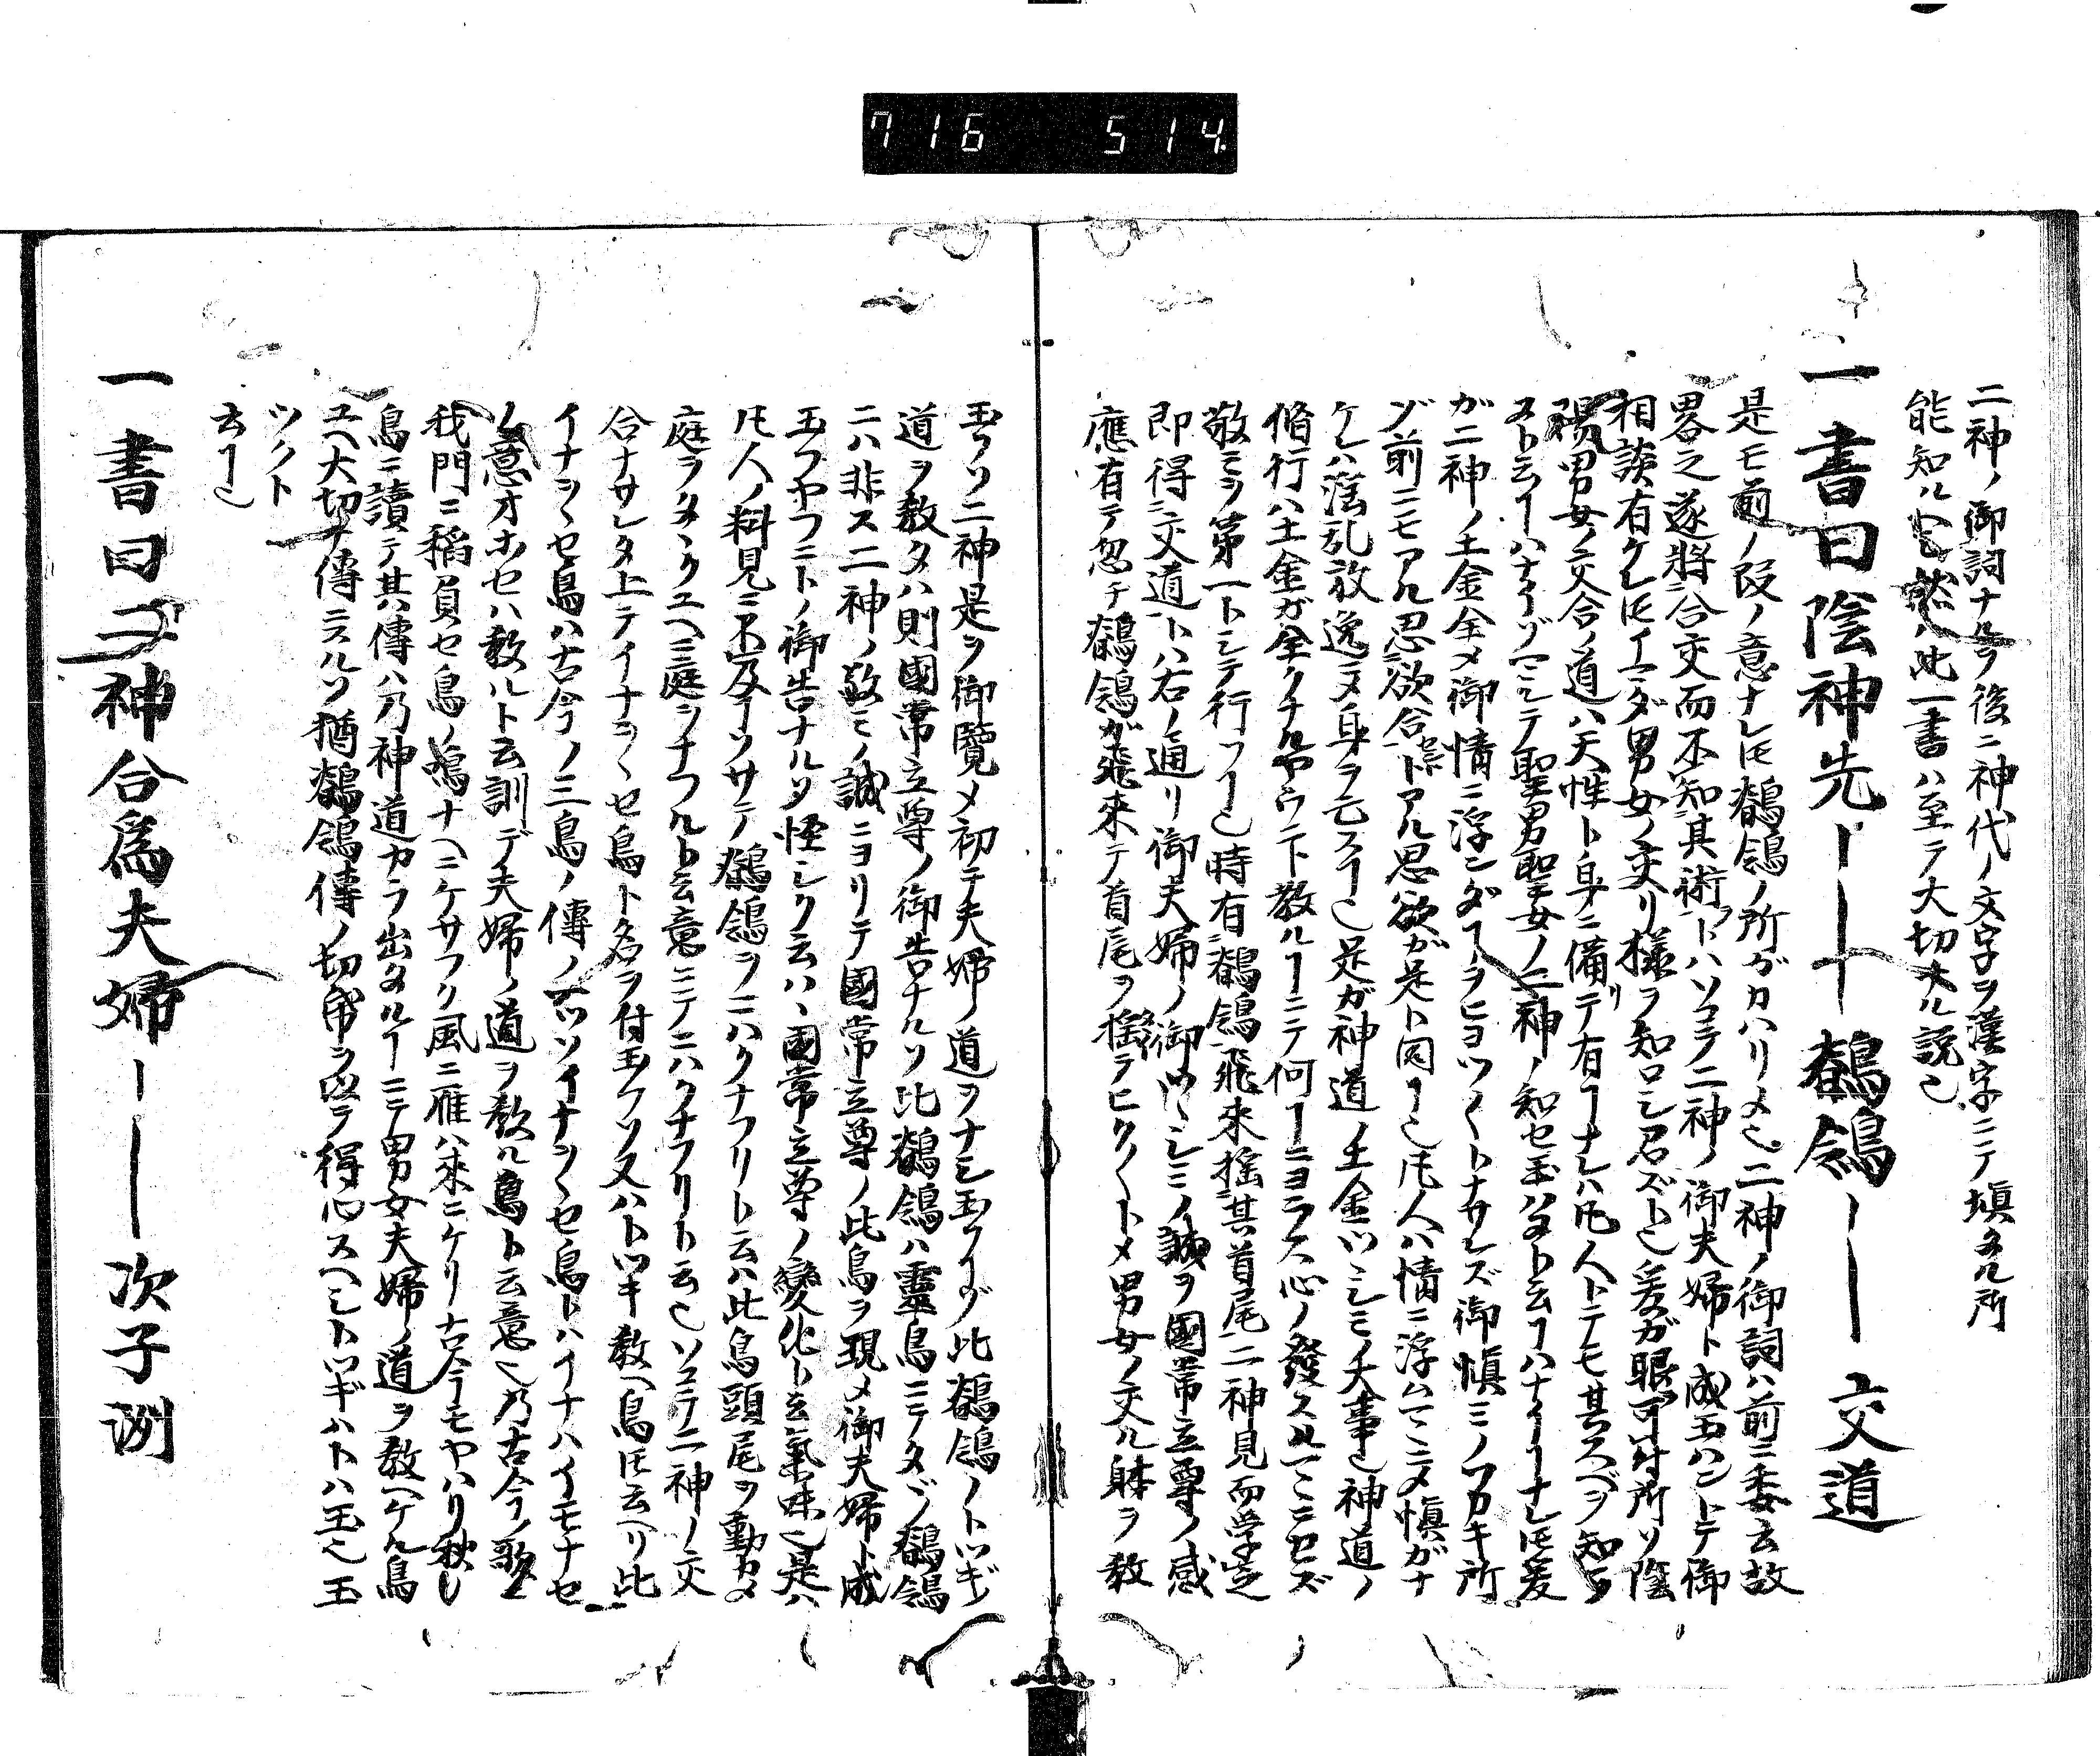 716 514
二神ノ御詞ナルヲ後ニ神代ノ文字ヲ漢字ニテ填タル所
能知ル此一書ハ至テ大切ナル説也
一書曰陰神先ーーー鶺鴒ーー交道
是モ前ノ段ノ意ナレ𪜈鶺鴒ノ所ガカハリメ也二神ノ御詞ハ前ニ委云故
畧之遂將合交而不知其術トハソコデ二神ノ御夫婦ト成玉ハントテ御
相談有ケレ𪜈イマダ男女ノ交リ様ヲ知ロシ召ズト也爰ガ眼可付所ソ陰
陽男女ノ交合ノ道ハ天性ト身ニ備リテ有ヿナレハ凡人トテモ其スベヲ知ラ
ヌト云ヿハナイゾマシテ聖男聖女ノ二神ノ知セ玉ハヌト云ヿハナイヿナレ𪜈爰
ガ二神ノ土金全メ御情ニ浮ンダヿヲヒヨツ〱トナサレズ御慎ミノツカキ所
ゾ前ニモアル思欲合トアル思欲ガ是ト同ヿ也凡人ハ情ニ浮ムマヽニメ慎ガナ
ケレハ淫乱放逸ニメ身ヲ亡スヿ也是ガ神道ノ土金ツヽシミノ大事也神道ノ
修行ハ土金ガ全クナルヤウニト教ルヿニテ何ヿニヨラス心ノ發スルマヽニセズ
敬ミヲ第一トシテ行フヿ也時有鶺鴒飛來揺其首尾二神見而学之
即得交道トハ右ノ通リ御夫婦ノ御ツヽシミノ誠ヲ國常立尊ノ感
應有テ忽チ鶺鴒ガ飛来テ首尾ヲ揺ヲヒク〱トメ男女ノ交ル躰ヲ教
玉フソ二神是ヲ御覽メ初テ夫婦ノ道ヲナシ玉フヿゾ比鶺鴒ノトツギ
道ヲ教タハ則國常立尊ノ御告ナルソ比鶺鴒ハ靈鳥ニテタヾ鶺鴒
ニハ非ス二神ノ敬ミノ誠ニヨリテ國常立尊ノ此鳥ヲ現メ御夫婦ト成
玉フヤフニトノ御告ナルソ怪シク云ハヽ國常立尊ノ變化ト云氣味也是ハ
凡人ノ料見ニ不及ヿソサテ鶺鴒ヲニハクナフリト云ハ此鳥頭尾ヲ動カメ
庭ヲタヽクユヘニ庭ヲナフルト云意ニテニハクナフリト云也ソコデ二神ノ交
合ナサレタ上テイナヲヽセ鳥ト名ヲ付玉フソ又ハトツキ教ヘ鳥𪜈云ヘリ比
イナヲヽセ鳥ハ古今ノ三鳥ノ傳ノ一ツソイナヲヽセ鳥トハイナハイモナセ
ノ意オホセハ教ルト云訓デ夫婦ノ道ヲ教ル鳥ト云意也乃古今ノ歌ニ
我門ニ稲負セ鳥ノ鳴ナヘニケサフク風ニ雁ハ来ニケリ古今モヤハリ秋ノ
鳥ニ讀テ其傳ハ乃神道カラ出タルヿニテ男女夫婦ノ道ヲ教ヘケル鳥
ユヘ大切ナ傳ニスルソ猶鶺鴒傳ノ切帋ヲ以テ得心スヘシトツギハトハ玉也玉
ツクト
云ヿ也
一書曰二神合爲夫婦ーーー次子洲